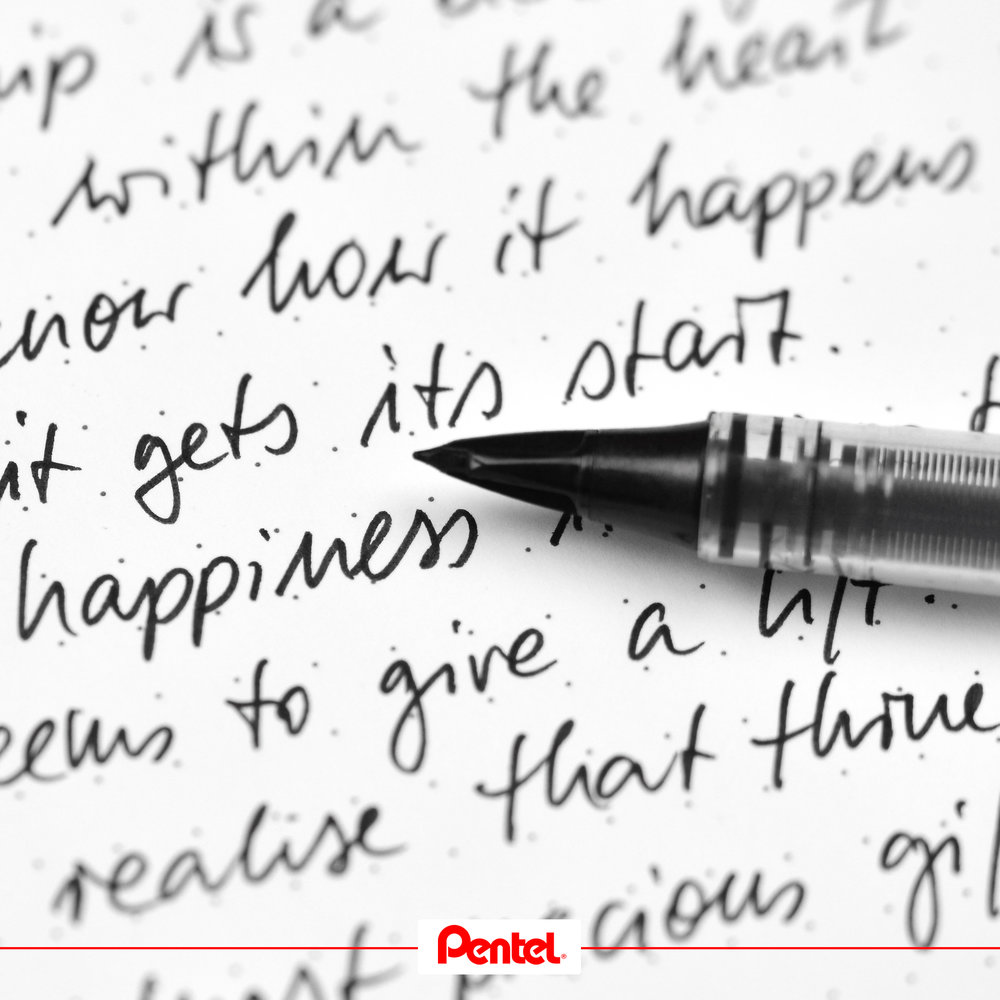 is a
within the heart
know how it happens
it gets its start.
happiness
to give a lift
realise that thine
precious gif
Pentel